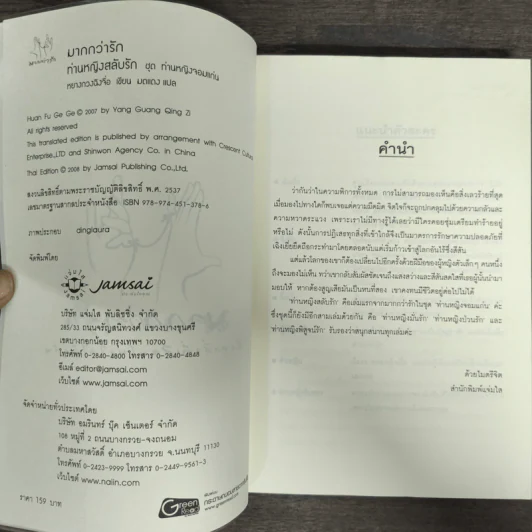 มากกว่ารัก
มากกว่ารัก
ท่านหญิงสลับรัก ชุด ท่านหญิงจอมแก่น
หยางกวงฉิงจื่อ เขียน มดแดง แปล
Huan Fu Ge Ge © 2007 by Yang Guang Qing Zi
All rights reserved
This translated edition is published by arrangement with Crescent Culture
Enterprise.,LTD and Shinwon Agency Co. in China
Thai Edition © 2008 by Jamsai Publishing Co.,Ltd.
สงวนลิขสิทธิ์ตามพระราชบัญญัติลิขสิทธิ์ พ.ศ. 2537
เลขมาตรฐานสากลประจำหนังสือ ISBN 978-974-451-378-6
ภาพประกอบ dinglaura
จัดพิมพ์โดย
แจ่มใส
Jamsai
Jamsai
บริษัท แจ่มใส พับลิชชิ่ง จำกัด
285/33 ถนนจรัญสนิทวงศ์ แขวงบางขุนศรี
เขตบางกอกน้อย กรุงเทพฯ 10700
โทรศัพท์ 0-2840-4800 โทรสาร 0-2840-4848
อีเมล์ editor@jamsai.com
เว็บไซต์ www.jamsai.com
จัดจำหน่ายทั่วประเทศโดย
บริษัท อมรินทร์ บุ๊ค เซ็นเตอร์ จำกัด
108 หมู่ที่ 2 ถนนบางกรวย-จงถนอม
ตำบลมหาสวัสดิ์ อำเภอบางกรวย จ.นนทบุรี 11130
โทรศัพท์ 0-2423-9999 โทรสาร 0-2449-9561-3
เว็บไซต์ www.naiin.com
ราคา 159 บาท
Green
Read
คำนำ
ว่ากันว่าในความพิการทั้งหมด การไม่สามารถมองเห็นคือสิ่งเลวร้ายที่สุด
เมื่อมองไปทางใดก็พบเจอแต่ความมืดมิด จิตใจก็จะถูกปกคลุมไปด้วยความกลัวและ
ความหวาดระแวง เพราะเราไม่มีทางรู้ได้เลยว่ามีใครคอยซุ่มเตรียมทำร้ายอยู่
หรือไม่ ดังนั้นการปฏิเสธทุกสิ่งที่เข้าใกล้จึงเป็นมาตรการรักษาความปลอดภัยที่
เฉิงเยี่ยยึดถือกระทำมาโดยตลอดนับแต่เริ่มก้าวเข้าสู่โลกอันไร้ซึ่งสีสัน
แต่แล้วโลกของเขาก็ต้องเปลี่ยนไปอีกครั้งด้วยฝีมือของผู้หญิงตัวเล็กๆ คนหนึ่ง
ถึงจะมองไม่เห็น ทว่าเขากลับสัมผัสชัดเจนถึงแสงสว่างและสีสันสดใสที่เธอผู้นั้นนำมา
มอบให้ หากต้องสูญเสียมันเป็นหนที่สอง เขาคงทนมีชีวิตอยู่ต่อไปไม่ได้
'ท่านหญิงสลับรัก' คือเล่มแรกจากมากกว่ารักในชุด 'ท่านหญิงจอมแก่น' ค่ะ
ซึ่งชุดนี้ก็ยังมีอีกสามเล่มด้วยกัน คือ 'ท่านหญิงมั่นรัก' 'ท่านหญิงป่วนรัก' และ
'ท่านหญิงพิสูจน์รัก' รับรองว่าสนุกสนานทุกเล่มค่ะ
ด้วยไมตรีจิต
สำนักพิมพ์แจ่มใส